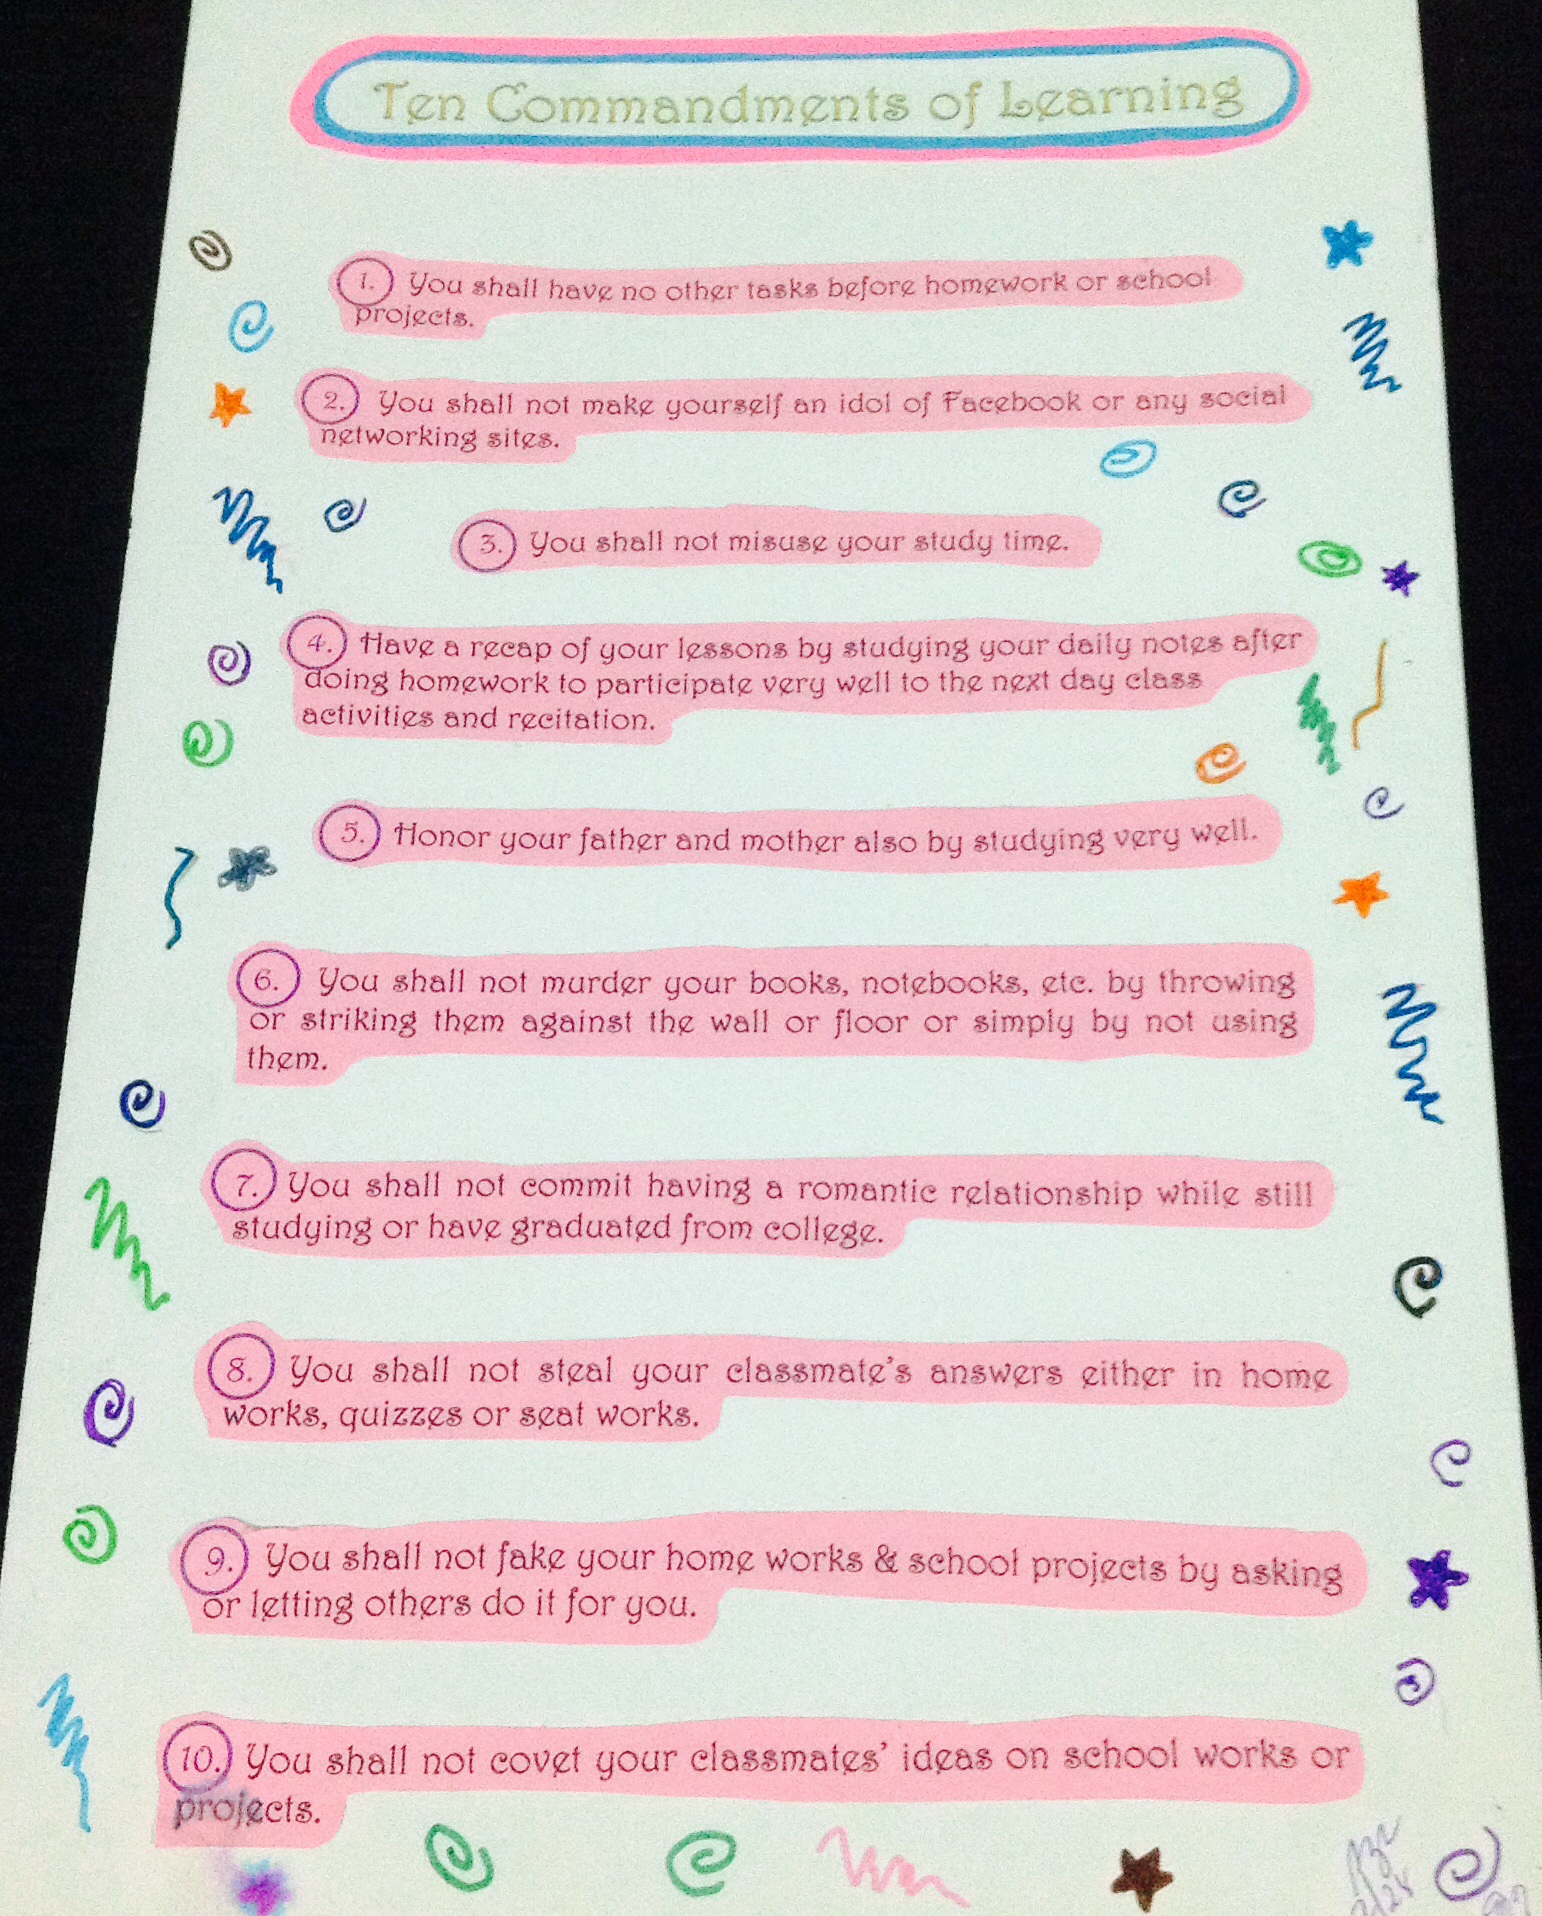 Ten Commandments of Learning
1. You shall have no other tasks before homework or school
projects.
2. You shall not make yourself an idol of Facebook or any social
networking sites.
3. You shall not misuse your study time.
4. Have a recap of your lessons by studying your daily notes after
doing homework to participate very well to the next day class
activities and recitation.
5. Honor your father and mother also by studying very well.
6. You shall not murder your books, notebooks, etc. by throwing
or striking them against the wall or floor or simply by not using
them.
7. You shall not commit having a romantic relationship while still
studying or have graduated from college.
8. You shall not steal your classmate's answers either in home
works, quizzes or seat works.
9. You shall not fake your home works & school projects by asking
or letting others do it for you.
10. You shall not covet your classmates' ideas on school works or
projects.